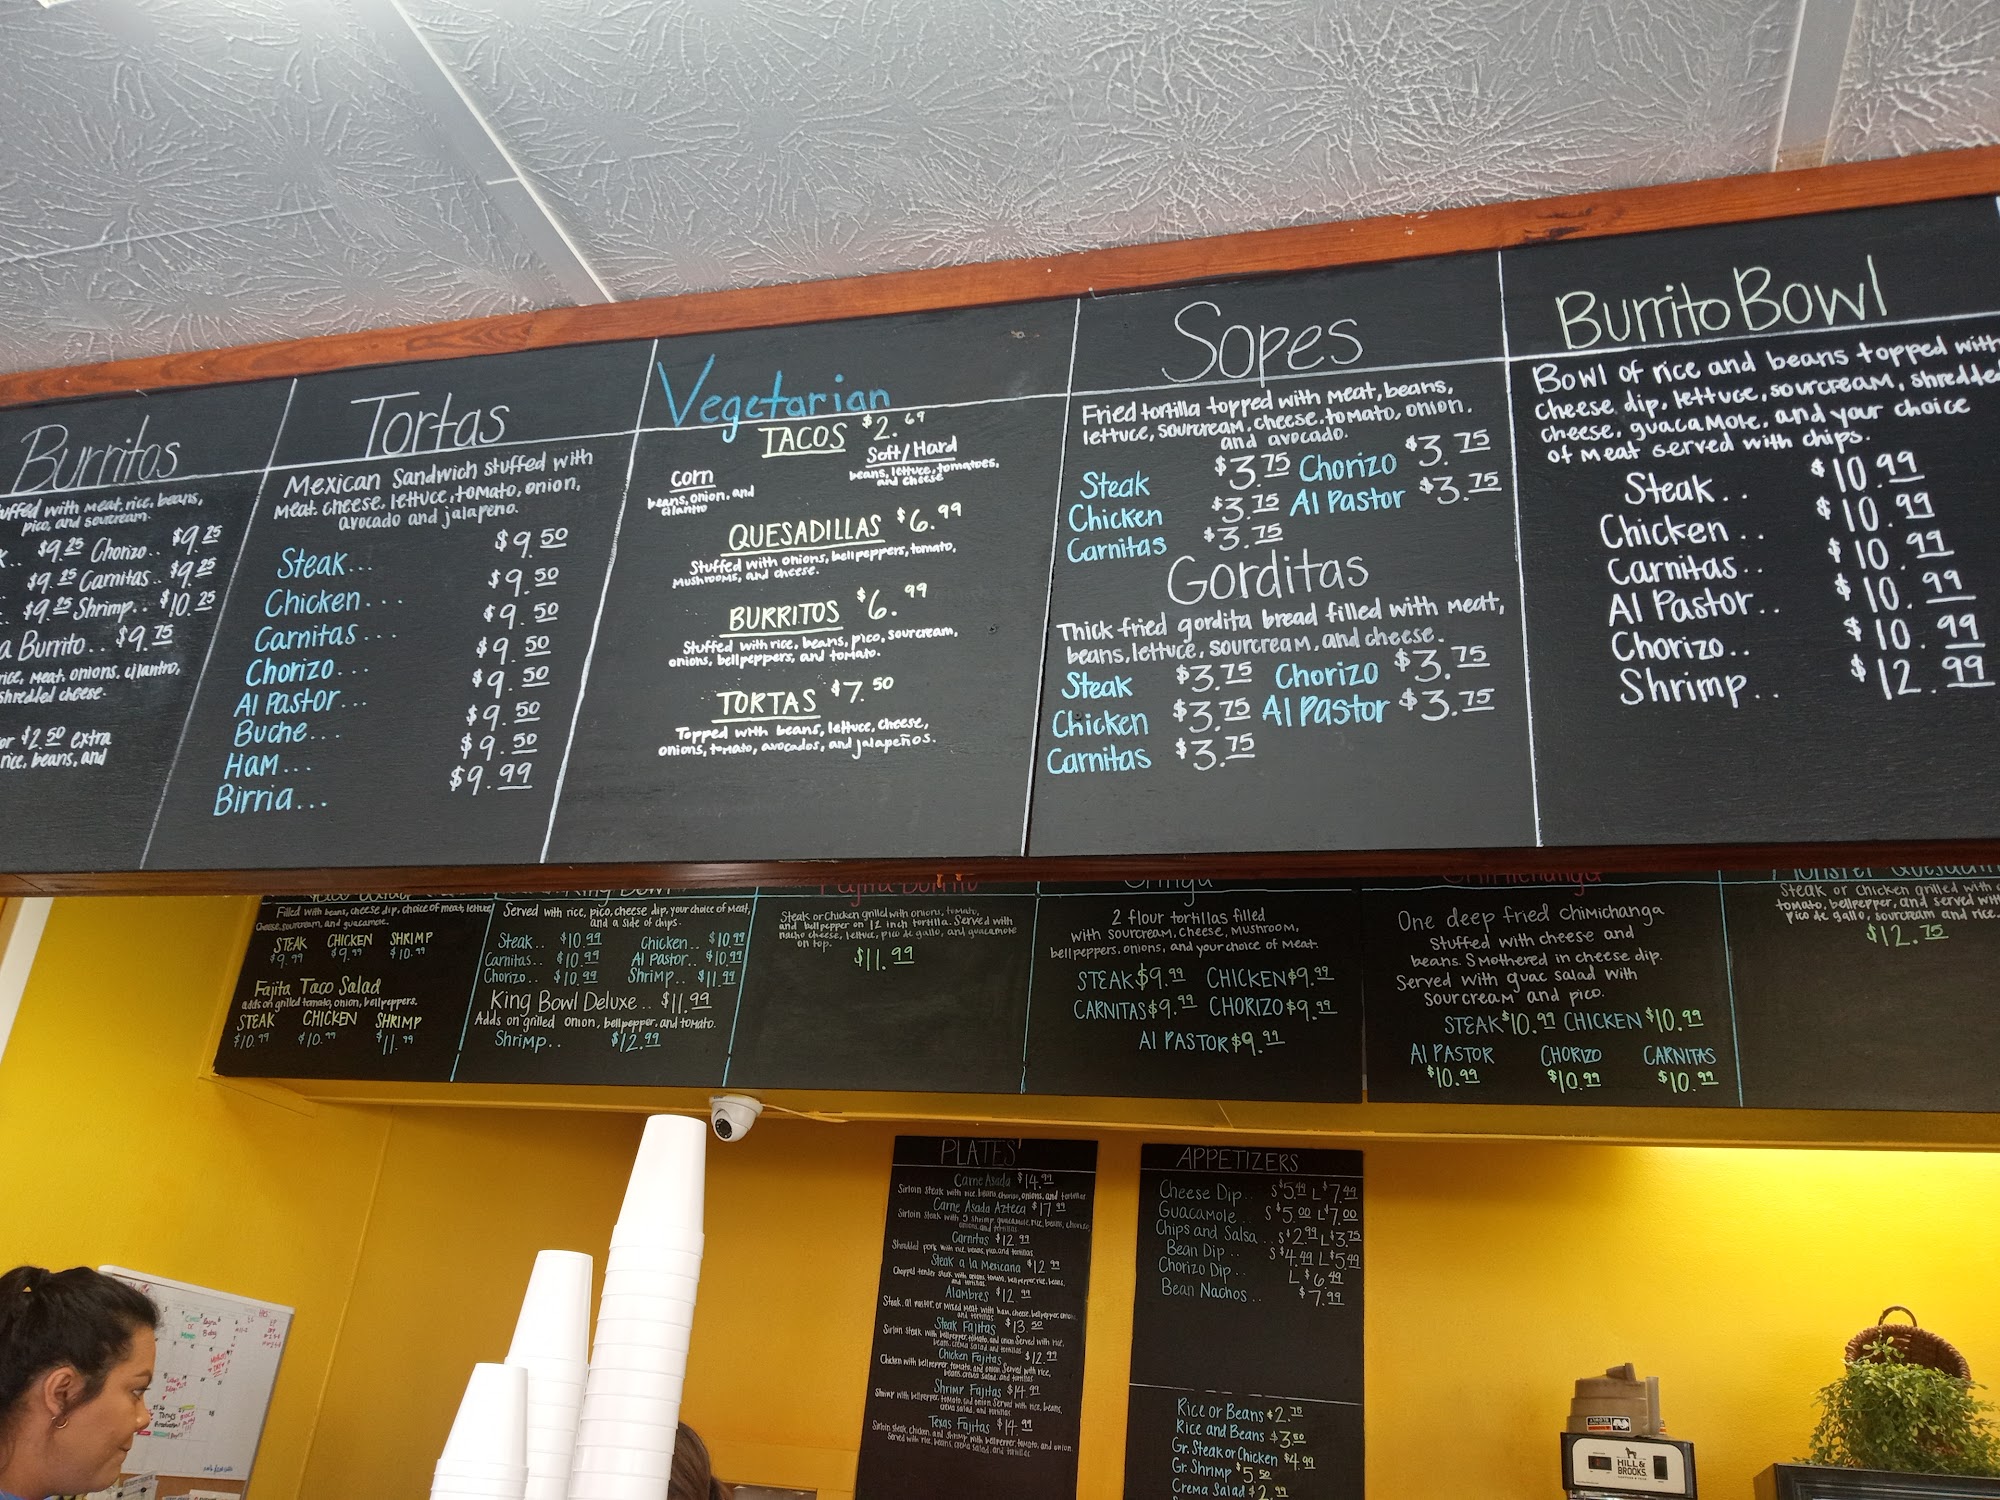 Burritos
uffed with meat, rice, beans,
pico, and sourcream.
$9.25 Chorizo.. $9.25
$9.25 Carnitas.. $9.25
$9.25 Shrimp.. $10.25
a Burrito.. $9.75
rice, meat, onions, cilantro,
shredded cheese.
or $2.50 extra
rice, beans, and
Tortas
Mexican Sandwich stuffed with
meat, cheese, lettuce, tomato, onion,
avocado and jalapeno.
Steak... $9.50
Chicken.... $9.50
Carnitas.... $9.50
Chorizo... $9.50
Al Pastor... $9.50
Buche... $9.50
Ham... $9.50
Birria... $9.99
Vegetarian
TACOS $2.69
Corn
beans, onion, and
cilantro
Soft/Hard
beans, lettuce, tomatoes,
and cheese
QUESADILLAS $6.99
Stuffed with onions, bellpeppers, tomato,
Mushrooms, and cheese.
BURRITOS $6.99
Stuffed with rice, beans, pico, sourcream,
onions, bellpeppers, and tomato.
TORTAS $7.50
Topped with beans, lettuce, cheese,
onions, tomato, avocados, and jalapeños.
Sopes
Fried tortilla topped with meat, beans,
lettuce, sourcream, cheese, tomato, onion,
and avocado.
Steak $3.75 Chorizo $3.75
Chicken $3.75 Al Pastor $3.75
Carnitas $3.75
Gorditas
Thick fried gordita bread filled with meat,
beans, lettuce, sourcream, and cheese.
Steak $3.75 Chorizo $3.75
Chicken $3.75 Al Pastor $3.75
Carnitas $3.75
Burrito Bowl
Bowl of rice and beans topped with
cheese dip, lettuce, sourcream, shredded
cheese, guacamole, and your choice
of meat served with chips.
Steak.. $10.99
Chicken.. $10.99
Carnitas.. $10.99
Al Pastor.. $10.99
Chorizo.. $10.99
Shrimp.. $12.99
Filled with beans, cheese dip, choice of meat, lettuce
cheese, sourcream, and guacamole.
STEAK CHICKEN SHRIMP
$9.99 $9.99 $10.99
Fajita Taco Salad
adds on grilled tomato, onion, bellpeppers.
STEAK CHICKEN SHRIMP
$10.99 $10.99 $11.99
King Bowl
Served with rice, pico, cheese dip, your choice of meat,
and a side of chips.
Steak.. $10.99 Chicken.. $10.99
Carnitas.. $10.99 Al Pastor.. $10.99
Chorizo.. $10.99 Shrimp.. $11.99
King Bowl Deluxe.. $11.99
Adds on grilled onion, bellpepper, and tomato.
Shrimp.. $12.99
Fajita Burrito
Steak or Chicken grilled with onions, tomato,
and bellpepper on 12 inch tortilla. Served with
nacho cheese, lettuce, pico de gallo, and guacamole
on top.
$11.99
Gringa
2 flour tortillas filled
with sourcream, cheese, mushroom,
bellpeppers, onions, and your choice of meat.
STEAK $9.99 CHICKEN $9.99
CARNITAS $9.99 CHORIZO $9.99
Al PASTOR $9.99
Chimichanga
One deep fried chimichanga
stuffed with cheese and
beans. Smothered in cheese dip.
Served with guac salad with
sourcream and pico.
STEAK $10.99 CHICKEN $10.99
Al PASTOR CHORIZO CARNITAS
$10.99 $10.99 $10.99
Monster Quesadilla
Steak or Chicken grilled with
tomato, bellpepper, and served with
pico de gallo, sourcream and rice.
$12.75
PLATES
Carne Asada $14.99
Sirloin Steak with rice, beans, chorizo, onions, and tortillas
Carne Asada Azteca $17.99
Sirloin Steak with 5 shrimp, guacamole, rice, beans, chorizo,
onions, and tortillas
Carnitas $12.99
Shredded pork with rice, beans, pico, and tortillas
Steak a la Mexicana $12.99
Chopped tender steak with onions, tomato, bellpepper, rice, beans,
and tortillas.
Alambres $12.99
Steak, al pastor, or mixed meat with ham, cheese, bellpepper, onion
and tortillas
Steak Fajitas $13.50
Sirloin Steak with bellpepper, tomato, and onion. Served with rice,
beans, crema salad, and tortillas
Chicken Fajitas $12.99
Chicken with bellpepper, tomato, and onion. Served with rice,
beans, crema salad, and tortillas
Shrimp Fajitas $14.99
Shrimp with bellpepper, tomato, and onion. Served with rice, beans,
crema salad, and tortillas
Texas Fajitas $14.99
Sirloin steak, chicken, and shrimp with bellpepper, tomato, and onion.
Served with rice, beans, crema salad, and tortillas
APPETIZERS
Cheese Dip.. S $5.49 L $7.49
Guacamole.. S $5.00 L $7.00
Chips and Salsa.. S $2.99 L $3.75
Bean Dip.. S $4.49 L $5.49
Chorizo Dip.. L $6.49
Bean Nachos.. $7.99
Rice or Beans $2.75
Rice and Beans $3.50
Gr. Steak or Chicken $4.99
Gr. Shrimp $5.50
Crema Salad $2.99
HILL &
BROOKS